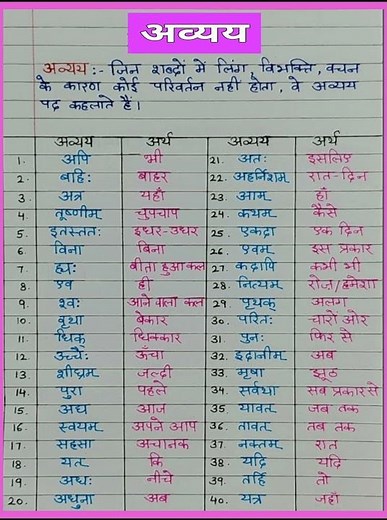 अव्यय
अव्यय :- जिन शब्दों में लिंग, विभक्ति, वचन
के कारण कोई परिवर्तन नहीं होता, वे अव्यय
पद कहलाते हैं।
अव्यय अर्थ अव्यय अर्थ
1. अपि भी 21. अतः इसलिए
2. बहिः बाहर 22. अहर्निशम् रात-दिन
3. अत्र यहाँ 23. आम् हाँ
4. तूष्णीम् चुपचाप 24. कथम् कैसे
5. इतस्ततः इधर-उधर 25. एकदा एक दिन
6. विना बिना 26. एवम् इस प्रकार
7. ह्यः बीता हुआ कल 27. कदापि कभी भी
8. एव ही 28. नित्यम् रोज़/हमेशा
9. श्वः आने वाला कल 29. पृथक् अलग
10. वृथा बेकार 30. परितः चारों ओर
11. धिक् धिक्कार 31. पुनः फिर से
12. उच्चैः ऊँचा 32. इदानीम् अब
13. शीघ्रम् जल्दी 33. मृषा झूठ
14. पुरा पहले 34. सर्वथा सब प्रकार से
15. अद्य आज 35. यावत् जब तक
16. स्वयम् अपने आप 36. तावत् तब तक
17. सहसा अचानक 37. नक्तम् रात
18. यत् कि 38. यदि यदि
19. अधः नीचे 39. तर्हि तो
20. अधुना अब 40. यत्र जहाँ